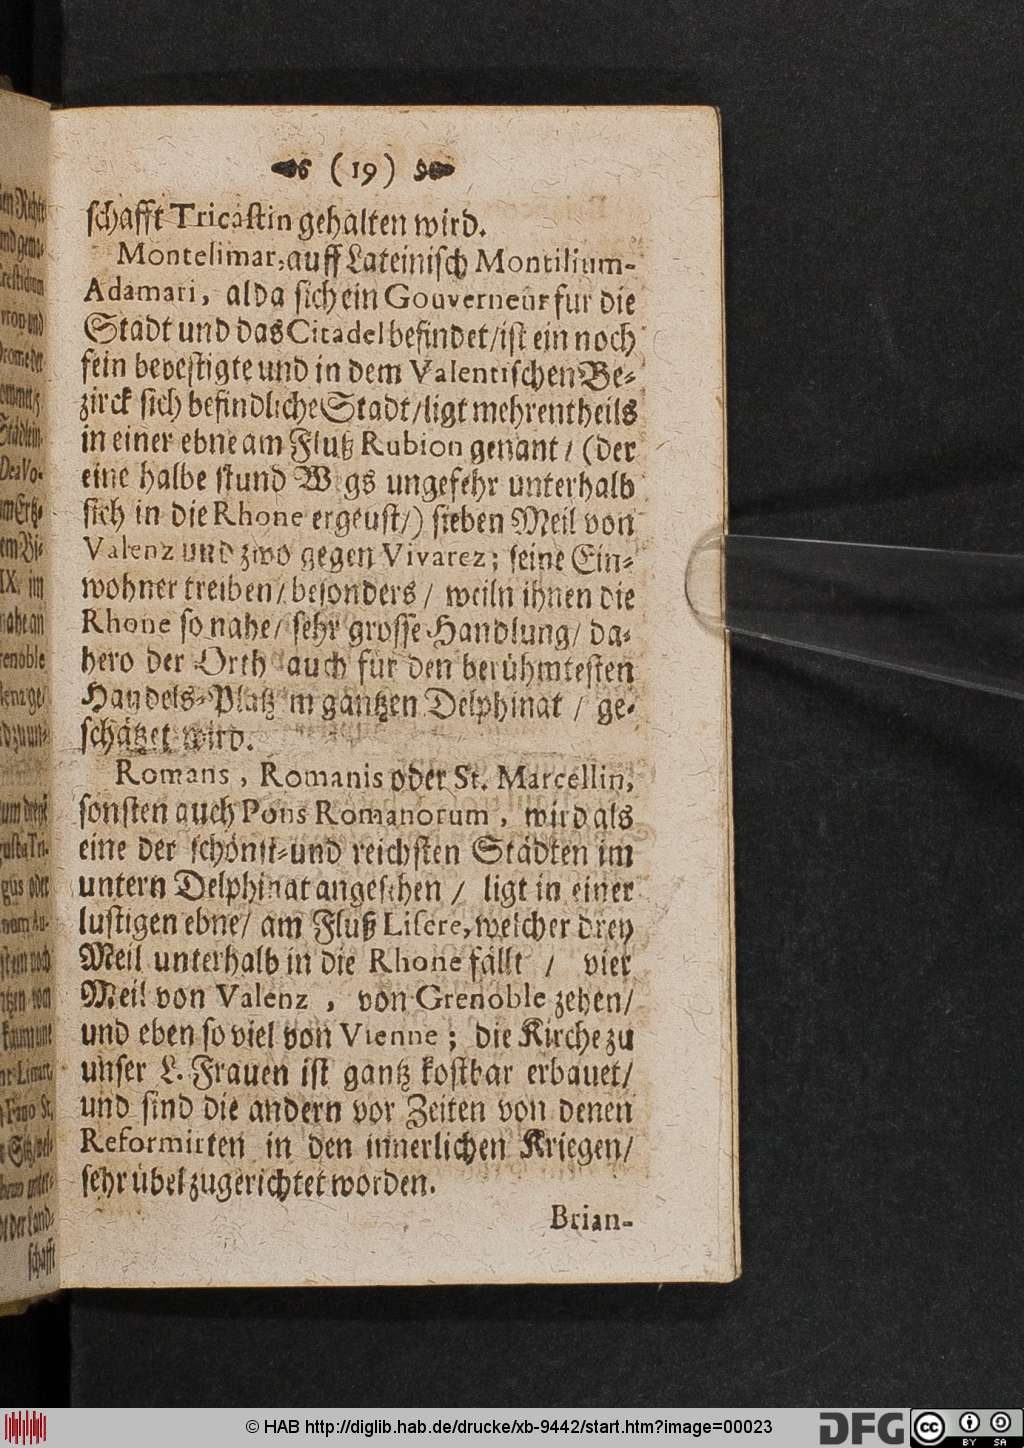 (19)
schafft Tricastin gehalten wird.
Montelimar, auff Lateinisch Montilium-
Adamari, alda sich ein Gouverneur fur die
Stadt und das Citadel befindet/ ist ein noch
fein bevestigte und in dem Valentischen Be-
zirck sich befindliche Stadt/ ligt mehrentheils
in einer ebne am Fluß Rubion genant / (der
eine halbe stund Wegs ungefehr unterhalb
sich in die Rhone ergeust/) sieben Meil von
Valenz und zwo gegen Vivarez; seine Ein-
wohner treiben/ besonders/ weiln ihnen die
Rhone so nahe/ sehr grosse Handlung/ da-
hero der Orth auch für den berühmtesten
Handels-Platz im gantzen Delphinat / ge-
schätzet wird.
Romans, Romanis oder St. Marcellin,
sonsten auch Pons Romanorum, wird als
eine der schönst-und reichsten Städten im
untern Delphinat angesehen / ligt in einer
lustigen ebne/ am Fluß Lisere, welcher drey
Meil unterhalb in die Rhone fällt / vier
Meil von Valenz, von Grenoble zehen/
und eben so viel von Vienne; die Kirche zu
unser L. Frauen ist gantz kostbar erbauet/
und sind die andern vor Zeiten von denen
Reformirten in den innerlichen Kriegen/
sehr übel zugerichtet worden.
Brian-
schafft
© HAB http://diglib.hab.de/drucke/xb-9442/start.htm?image=00023
DFG
cc
BY SA